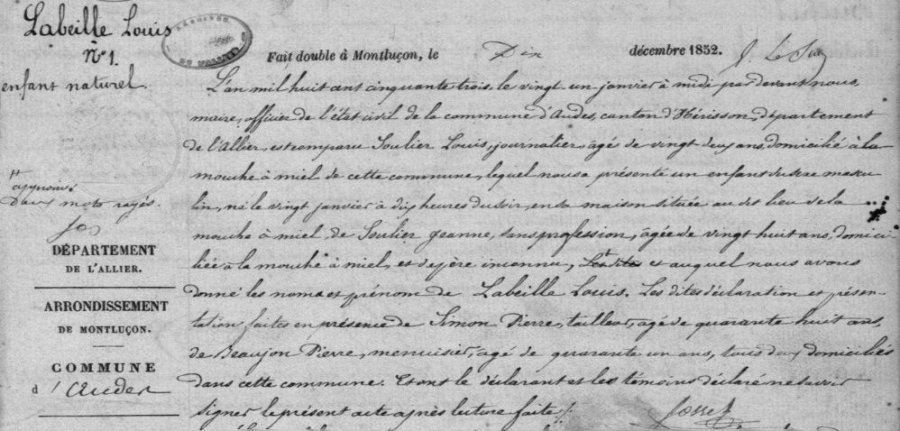 Labeille Louis
N° 1.
enfant naturel
Fait double à Montluçon, le Dix décembre 1852.
L'an mil huit cent cinquante trois, le vingt un janvier à midi par devant nous,
maire, officier de l'état civil de la commune d'Audes, canton d'Hérisson, département
de l'Allier, est comparu Soulier Louis, journalier, agé de vingt deux ans, domicilié à la
mouche à miel de cette commune, lequel nous a présenté un enfant du sexe mascu
lin, né le vingt janvier à dix heures du soir, en sa maison située au dit lieu de la
mouche à miel, de Soulier Jeanne, sans profession, agée de vingt huit ans, domici
liée à la mouche à miel, et de père inconnu, et auquel nous avons
donné les noms et prénom de Labeille Louis. Les dites déclaration et présen
tation faites en présence de Simon Pierre, tailleur, agé de quarante huit ans,
de Beaujon Pierre, menuisier, agé de quarante un ans, tous deux domiciliés
dans cette commune. Et ont le déclarant et les témoins déclaré ne savoir
signer le présent acte après lecture faite.
approuvé
deux mots rayés.
DÉPARTEMENT
DE L'ALLIER.
ARRONDISSEMENT
DE MONTLUÇON.
COMMUNE
d'Audes